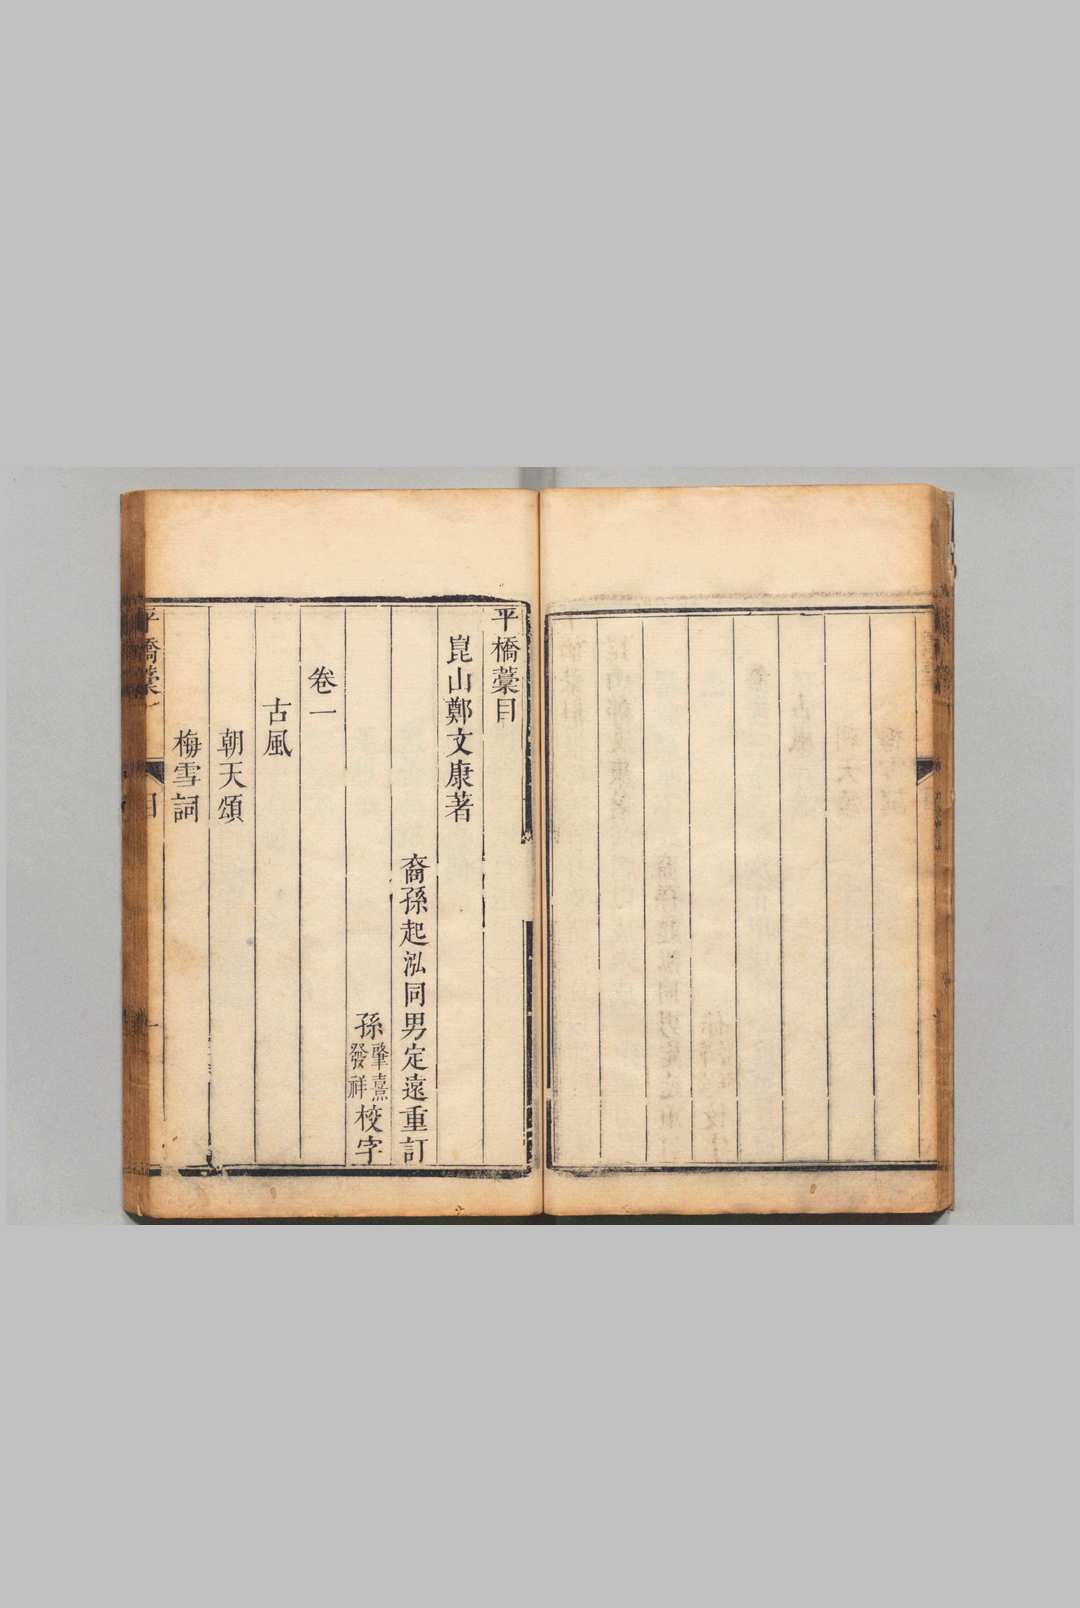 平橋藁目
崑山鄭文康著
裔孫起泓同男定遠重訂
孫肇熹發祥校字
卷一
古風
朝天頌
梅雪詞
平橋藁
目
一